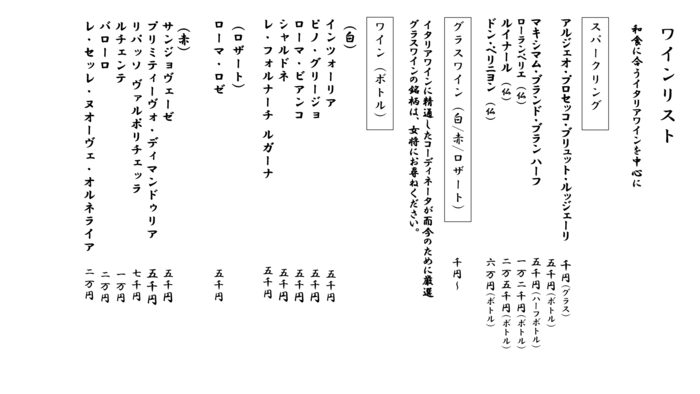 ワインリスト
和食に合うイタリアワインを中心に
スパークリング
アルジェオ・プロセッコ・ブリュット・ルッジェーリ 千円(グラス)
五千円(ボトル)
マキシマム・ブランド・ブラン ハーフ 五千円(ハーフボトル)
ローランペリエ (仏) 一万二千円(ボトル)
ルイナール (仏) 二万五千円(ボトル)
ドン・ペリニヨン (仏) 六万円(ボトル)
グラスワイン (白/赤/ロザート) 千円~
イタリアワインに精通したコーディネータが而今のために厳選
グラスワインの銘柄は、女将にお尋ねください。
ワイン (ボトル)
(白)
インツォーリア 五千円
ピノ・グリージョ 五千円
ローマ・ビアンコ 五千円
シャルドネ 五千円
レ・フォルナーチ ルガーナ 五千円
(ロザート)
ローマ・ロゼ 五千円
(赤)
サンジョヴェーゼ 五千円
プリミティーヴォ・ディマンドゥリア 五千円
リパッソ ヴァルポリチェッラ 七千円
ルチェンテ 一万円
バローロ 二万円
レ・セッレ・ヌオーヴェ・オルネライア 二万円